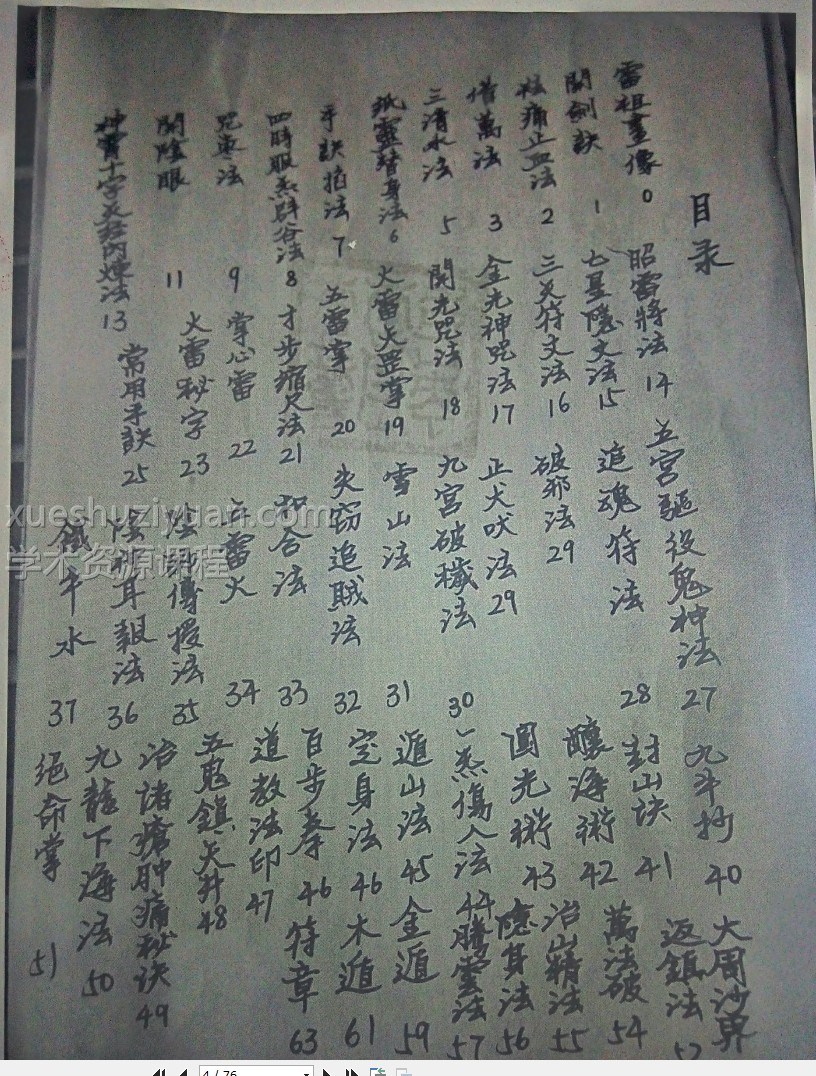 目录
雷祖畫像 0
開劍訣 1
祛痛止血法 2
借萬法 3
三清水法 5
紙靈替身法 6
手訣掐法 7
四時服炁辟谷法 8
咒棗法 9
開陰眼 11
神霄十字天經内煉法 13
昭雷將法 14
七星隱文法 15
三炁符文法 16
金光神咒法 17
開光咒法 18
火雷天罡掌 19
五雷掌 20
寸步缩尺法 21
掌心雷 22
火雷秘字 23
常用手訣 25
五宫驅役鬼神法 27
追魂符法 28
破邪法 29
止犬吠法 29
九宫破穢法 30
雪山法 31
失窃追賊法 32
和合法 33
雷火 34
傳授法 35
耳報法 36
鐵牛水 37
九牛抄 40
封山块 41
釀海術 42
圓光術 43
炁傷人法 44
遁山法 45
定身法 46
百步拳 46
道教法印 47
五鬼鎮天井 48
治諸瘡肿痛秘诀 49
九龍下海法 50
絕命掌 51
大周沙界
返鎮法 52
萬法破 54
治山精法 55
隱身法 56
騰雲法 57
金遁 59
木遁 61
符章 63
xueshuziyuan.com
学术资源课程
4 / 76